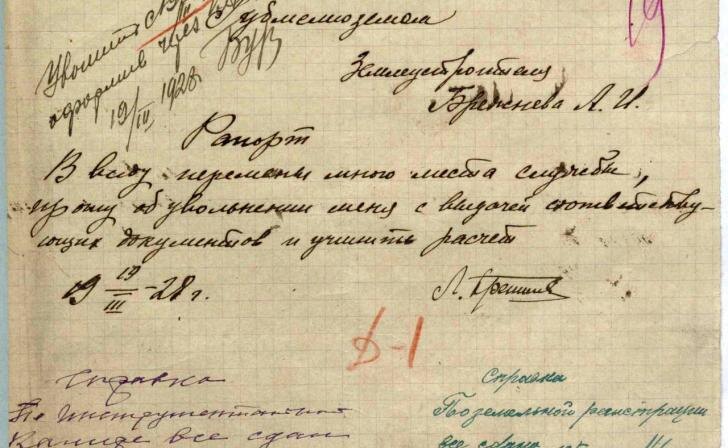 Губмелиоземом
Уволить с 19/III
оформив через
19/III 1928
Землеустроителя
Брежнева Л. И.
Рапорт
В виду перемены мною места службы,
прошу об увольнении меня с выдачей соответству-
ющих документов и учинить расчет
19 19/III -28 г.
Л. Брежнев
Б-1
Справка
По инструментальной
камере все сдано
Справка
По земельной регистрации
все сдано